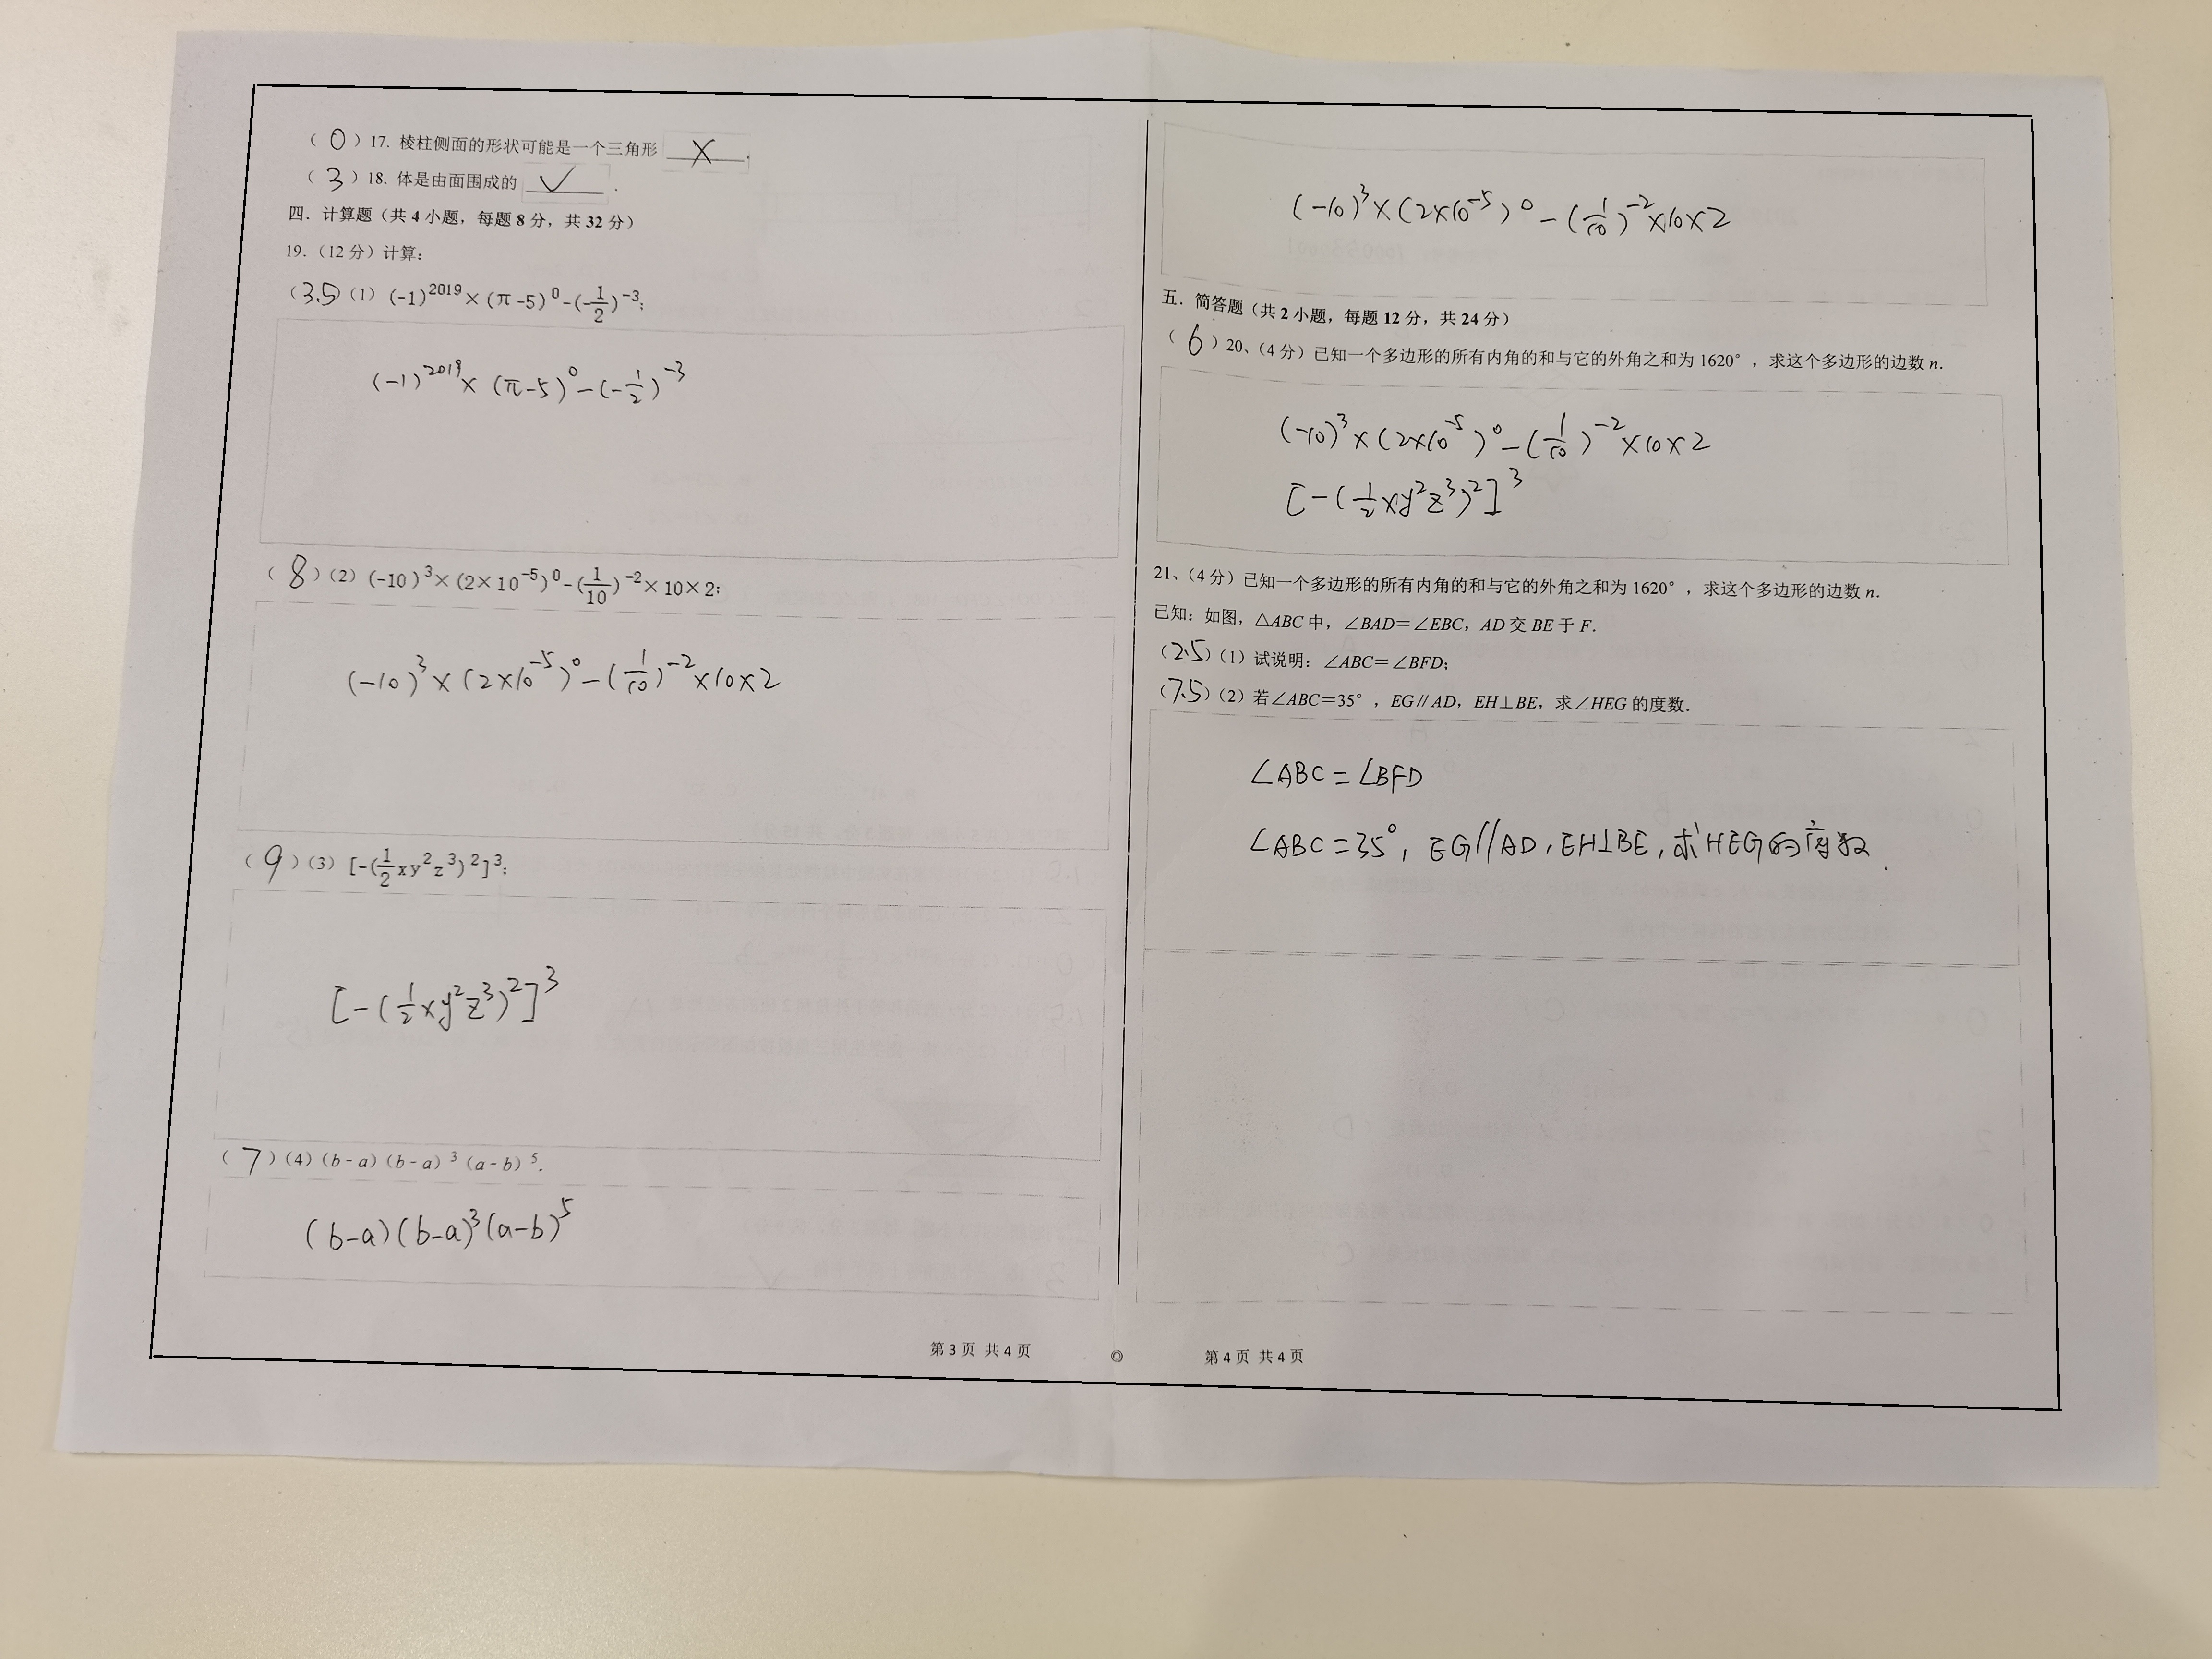 (0)17. 棱柱侧面的形状可能是一个三角形 ×.
(3)18. 体是由面围成的 √.
四. 计算题(共4小题,每题8分,共32分)
19.(12分)计算:
(3.5)(1)(-1)^2019×(π-5)^0-(-1/2)^-3;
(-1)^2019×(π-5)^0-(-1/2)^-3
(8)(2)(-10)^3×(2×10^-5)^0-(1/10)^-2×10×2;
(-10)^3×(2×10^-5)^0-(1/10)^-2×10×2
(9)(3)[-(1/2xy^2z^3)^2]^3;
[-(1/2xy^2z^3)^2]^3
(7)(4)(b-a)(b-a)^3(a-b)^5.
(b-a)(b-a)^3(a-b)^5
第3页 共4页
(-10)^3×(2×10^-5)^0-(1/10)^-2×10×2
五. 简答题(共2小题,每题12分,共24分)
(6)20、(4分)已知一个多边形的所有内角的和与它的外角之和为1620°,求这个多边形的边数n.
(-10)^3×(2×10^-5)^0-(1/10)^-2×10×2
[-(1/2xy^2z^3)^2]^3
21、(4分)已知一个多边形的所有内角的和与它的外角之和为1620°,求这个多边形的边数n.
已知:如图,△ABC中,∠BAD=∠EBC,AD交BE于F.
(2.5)(1)试说明:∠ABC=∠BFD;
(7.5)(2)若∠ABC=35°,EG∥AD,EH⊥BE,求∠HEG的度数.
∠ABC=∠BFD
∠ABC=35°,EG∥AD,EH⊥BE,求HEG的度数.
第4页 共4页